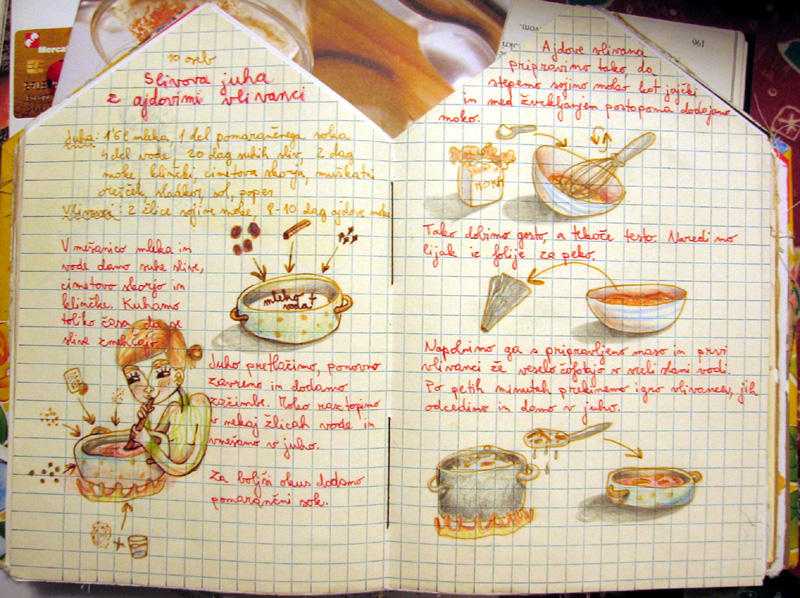 10 oseb
Slivova juha
z ajdovimi vlivanci
Juha: 1'5 l mleka, 1 del pomarančnega soka
4 del vode, 20 dag suhih sliv, 2 dag
moke, klinčki, cimetova skorja, muškatni
orešček, sladkor, sol, poper
Vlivanci: 2 žlice sojine moke, 8-10 dag ajdove moke
V mešanico mleka in
vode damo suhe slive,
cimetovo skorjo in
klinčke. Kuhamo
toliko časa da se
slive zmehčajo.
mleko +
voda
Juho pretlačimo, ponovno
zavremo in dodamo
začimbe. Moko raztopimo
v nekaj žlicah vode in
vmešamo v juho.
Za boljši okus dodamo
pomarančni sok.
Ajdove vlivance
pripravimo tako da
stepemo sojino moko kot jajčki
in med žvrkljanjem postopoma dodajamo
moko.
MOKA
Tako dobimo gosto, a tekoče testo. Naredimo
lijak iz folije za peko.
Napolnimo ga s pripravljeno maso in prvi
vlivanci že veselo čofotajo v vreli slani vodi.
Po petih minutah prekinemo igro vlivancev, jih
odcedimo in damo v juho.
Mercat
196
vom.